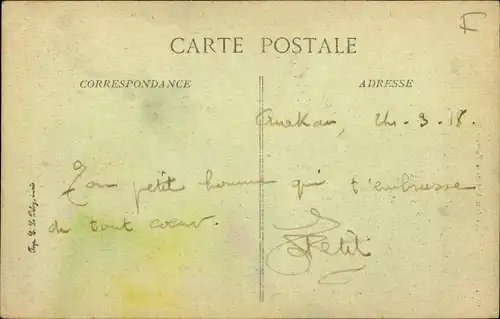 F
CARTE POSTALE
CORRESPONDANCE
ADRESSE
24-3-18.
Ton petit homme qui t'embrasse
de tout coeur.
Petit